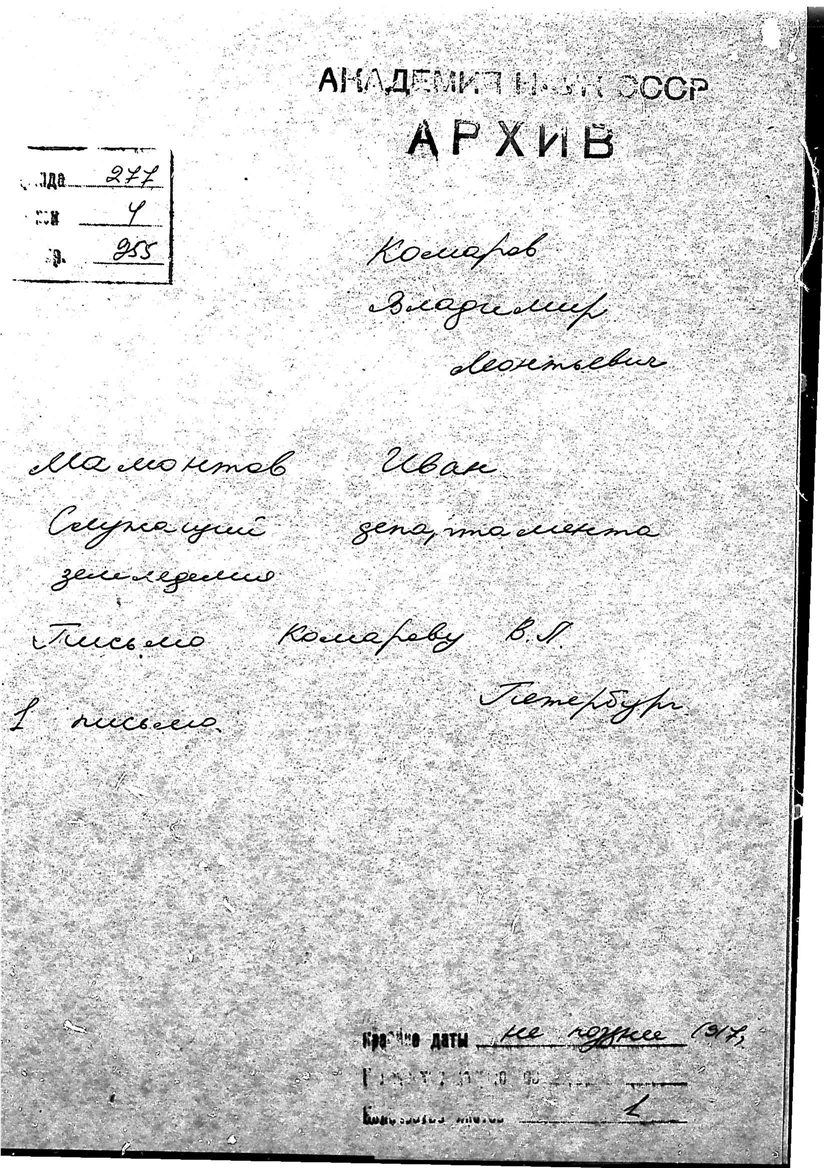 АКАДЕМИЯ НАУК СССР
АРХИВ
277
оп 4
р. 955
Комаров
Владимир
Леонтьевич
Мамонтов Иван
Служащий департамента
земледелия
Письмо Комарову В.Л.
Петербург
1 письмо
Крайние даты не позднее 1917,
Количество листов 1